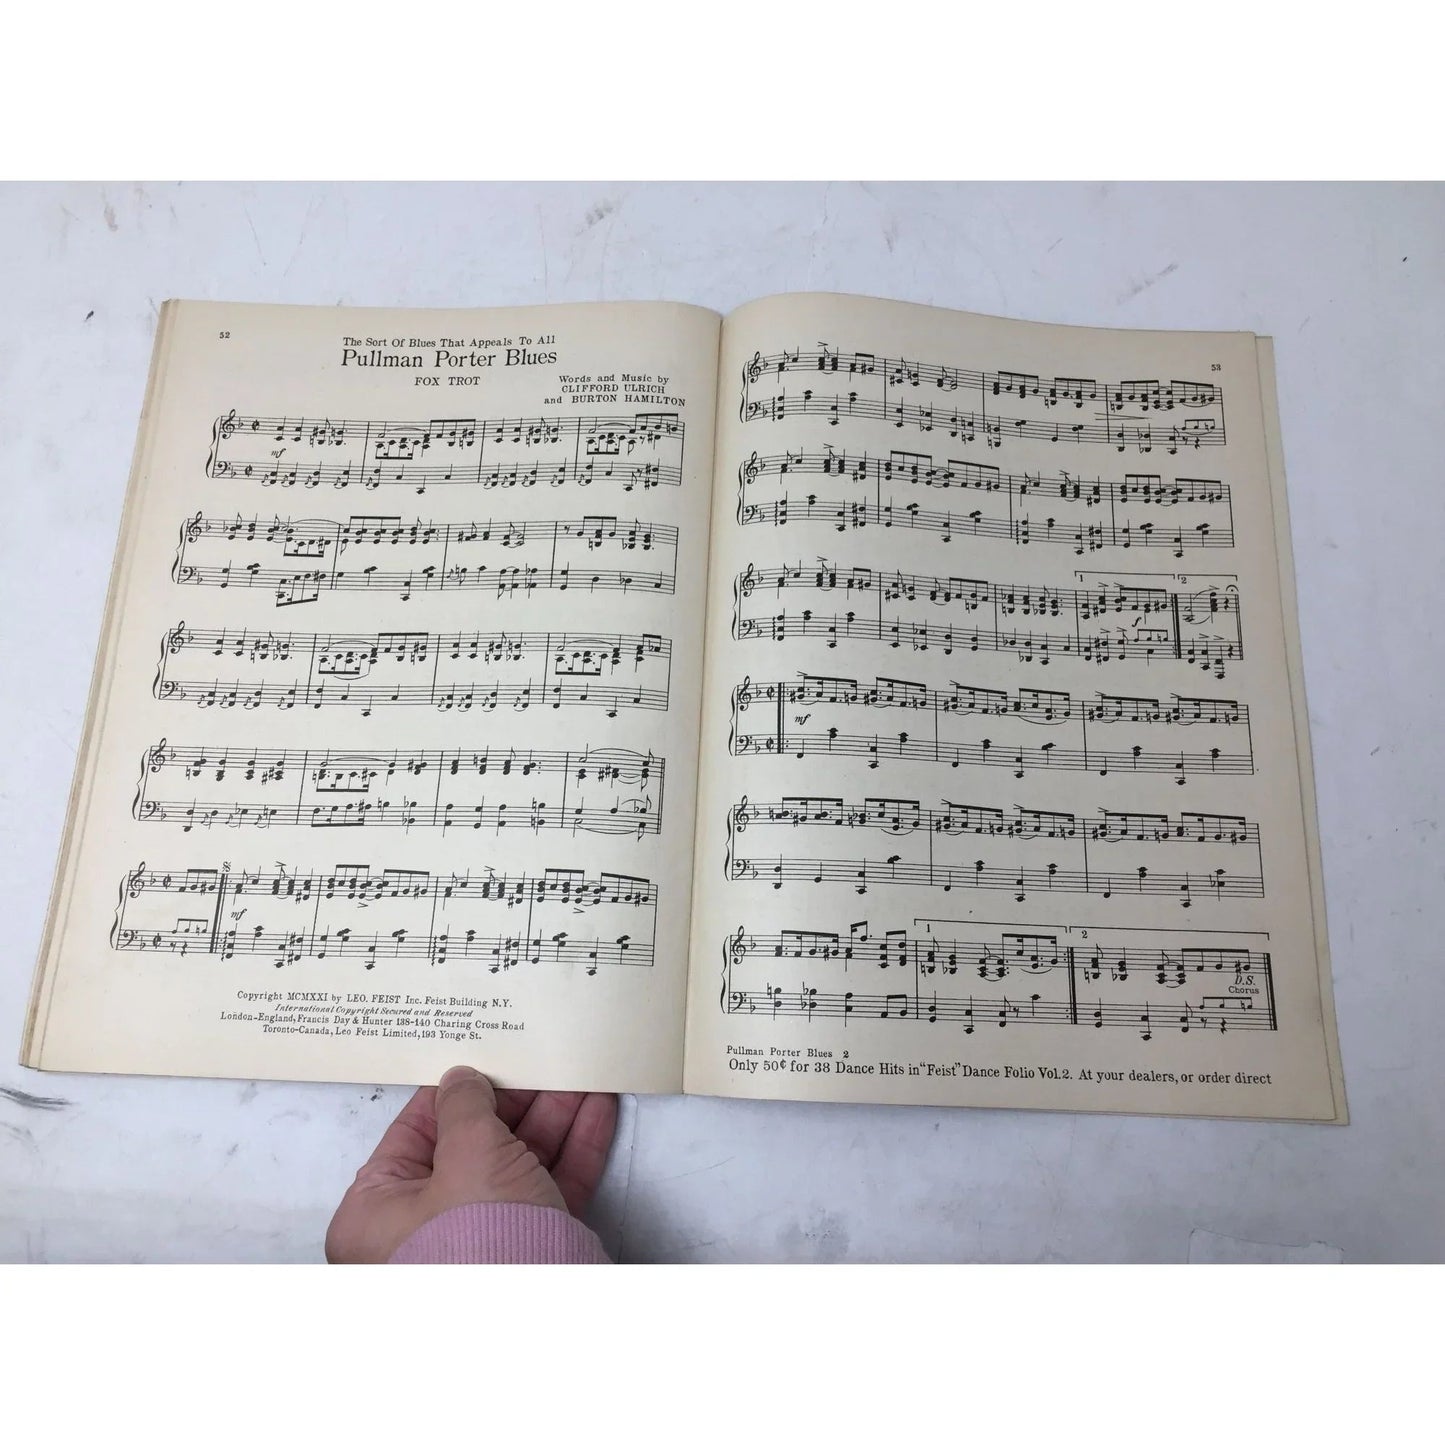 52
The Sort Of Blues That Appeals To All
Pullman Porter Blues
FOX TROT
Words and Music by
CLIFFORD ULRICH
and BURTON HAMILTON
mf
mf
Copyright MCMXXI by LEO. FEIST Inc. Feist Building N.Y.
International Copyright Secured and Reserved
London-England, Francis Day & Hunter 138-140 Charing Cross Road
Toronto-Canada, Leo Feist Limited, 193 Yonge St.
53
1
2
f
mf
1
2
D.S.
Chorus
Pullman Porter Blues 2
Only 50¢ for 38 Dance Hits in "Feist" Dance Folio Vol.2. At your dealers, or order direct